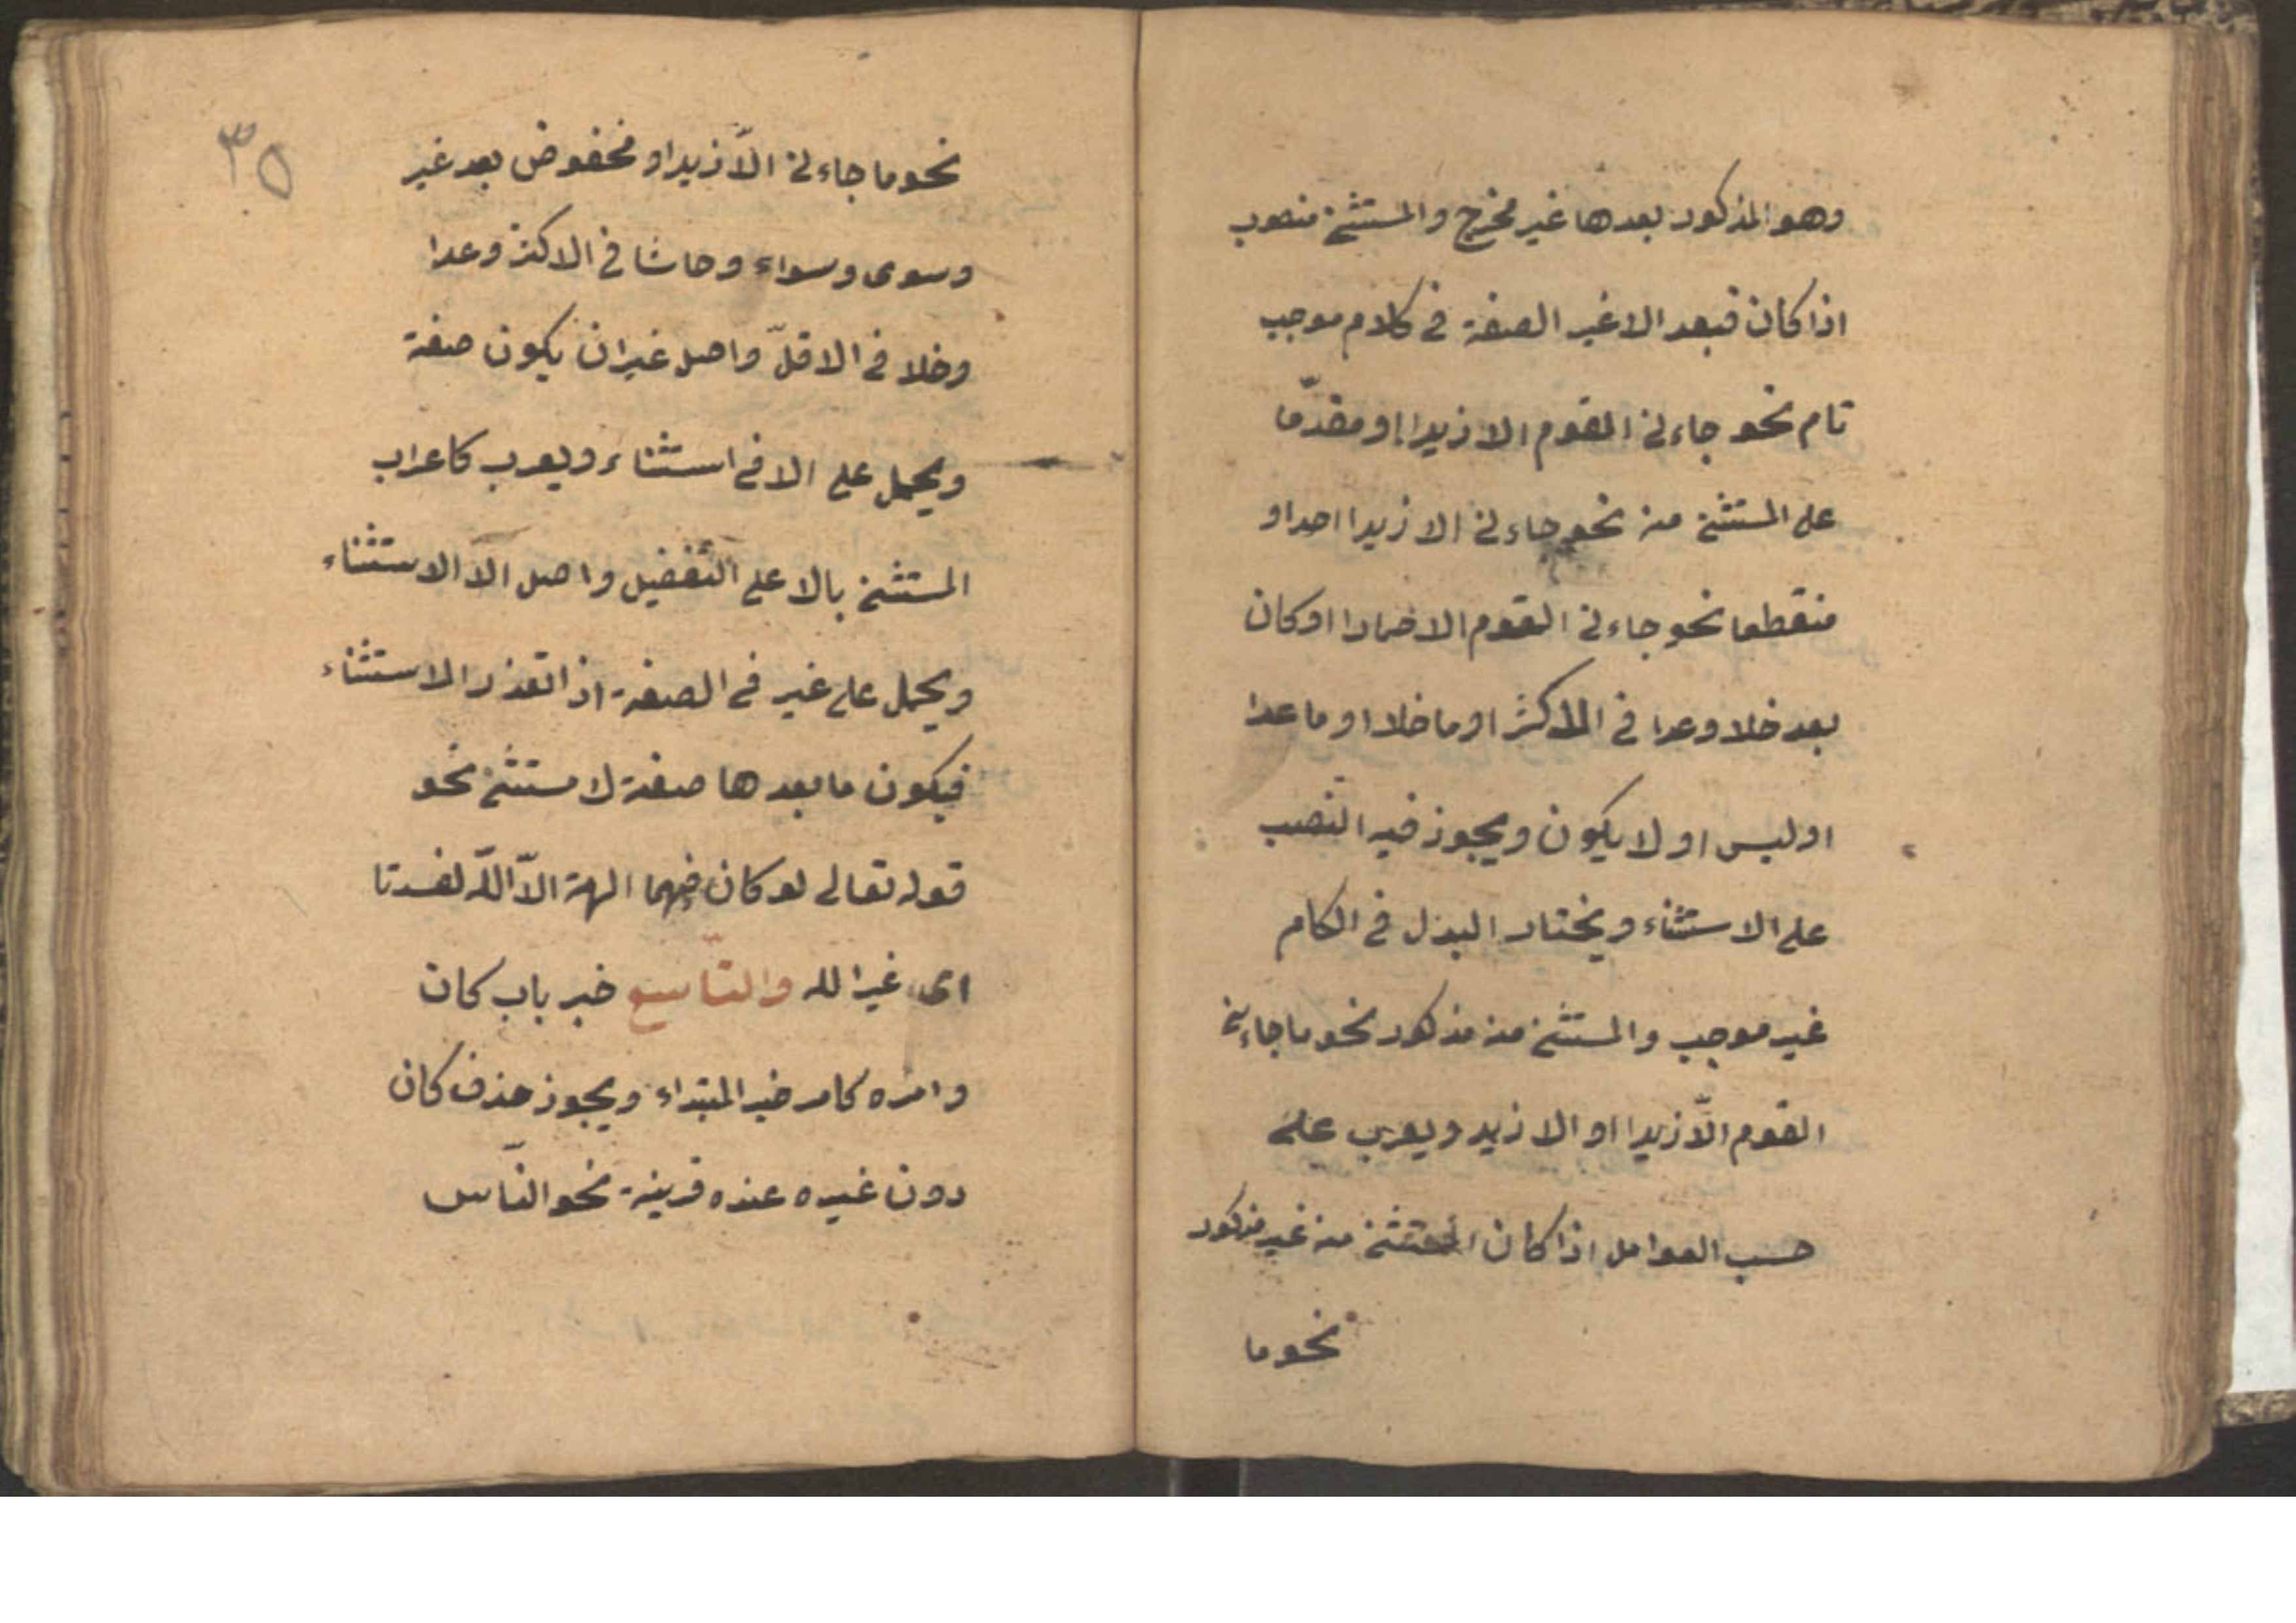 وهو المذكور بعدها غير مخرج والمستثنى منصوب
اذا كان فبعد الا غير الصفة فى كلام موجب
تام نحو جاءنى القوم الا زيدا او مقدّما
على المستثنى منه نحو جاءنى الا زيدا احد او
منقطعا نحو جاءنى القوم الا حمارا او كان
بعد خلا وعدا فى الاكثر او ما خلا او ما عدا
او ليس او لا يكون ويجوز فيه النّصب
على الاستثناء ويختار البدل فى الكام
غير موجب والمستثنى منه مذكور نحو ما جاءنى
القوم الّا زيدا او الا زيد ويعرب على
حسب العوامل اذا كان المستثنى منه غير مذكور
نحو ما
٣٥
نحو ما جاءنى الّا زيدا او مخفوض بعد غير
وسوى وسواء وحاشا فى الاكثر وعدا
وخلا فى الاقلّ واصل غير ان يكون صفة
ويحمل على الا فى استثناء ويعرب كاعراب
المستثنى بالا على التّفضيل واصل الّا الاستثناء
ويحمل على غير فى الصفة اذا تعذر الاستثناء
فيكون ما بعدها صفة لا مستثنى نحو
قوله تعالى لو كان فيهما الهة الّا اللّه لفسدتا
اى غير الله والتّاسع خبر باب كان
وامره كامر خبر المبتداء ويجوز حذف كان
دون غيره عنده قرينة نحو النّاس